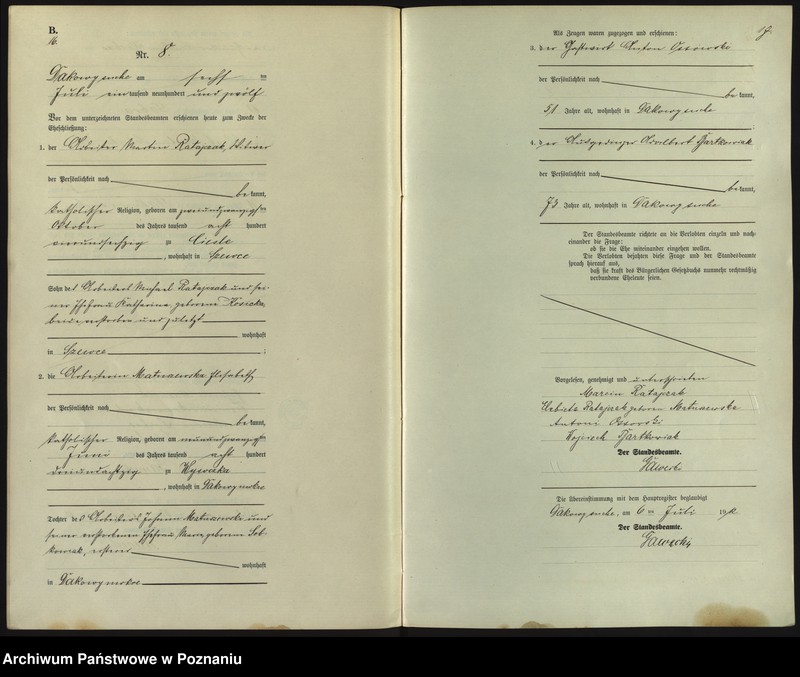 B.
16.
Nr. 8.
Dakowy suche am sechs ten
Juli eintausend neunhundert und zwölf
Vor dem unterzeichneten Standesbeamten erschienen heute zum Zwecke der
Eheschließung:
1. der Arbeiter Martin Ratajzak, Witwer
der Persönlichkeit nach
be kannt,
katholischer Religion, geboren am zweiundzwanzigsten
Oktober des Jahres tausend acht hundert
vierundsechzig zu Ciesle
, wohnhaft in
Sohn des Arbeiters Michael Ratajzak und sei-
ner Ehefrau Katharina, geborene
beide verstorben und zuletzt
wohnhaft
in
2. die Arbeiterin Elisabeth
der Persönlichkeit nach
be kannt,
katholischer Religion, geboren am neunundzwanzigsten
Juni des Jahres tausend acht hundert
zu Wysoczka
, wohnhaft in Dakowy mokre
Tochter des Arbeiters Johann und
seiner verstorbenen Ehefrau geborene Sob-
kowiak, ersterer
wohnhaft
in Dakowy mokre
17.
Als Zeugen waren zugezogen und erschienen:
3. der Gastwirt Anton Ossowski
der Persönlichkeit nach
be kannt,
51 Jahre alt, wohnhaft in Dakowy suche
4. der Ausgedinger Adalbert Bartkowiak
der Persönlichkeit nach
be kannt,
73 Jahre alt, wohnhaft in Dakowy suche
Der Standesbeamte richtete an die Verlobten einzeln und nach-
einander die Frage:
ob sie die Ehe miteinander eingehen wollen.
Die Verlobten bejahten diese Frage und der Standesbeamte
sprach hierauf aus,
daß sie kraft des Bürgerlichen Gesetzbuchs nunmehr rechtmäßig
verbundene Eheleute seien.
Vorgelesen, genehmigt und unterschrieben
Marcin Ratajzak
Ratajzak geboren
Antoni Ossowski
Wojciech Bartkowiak
Der Standesbeamte.
Gawecki
Die Übereinstimmung mit dem Hauptregister beglaubigt
Dakowy suche, am 6 ten Juli 1912
Der Standesbeamte.
Gawecki
Archiwum Państwowe w Poznaniu